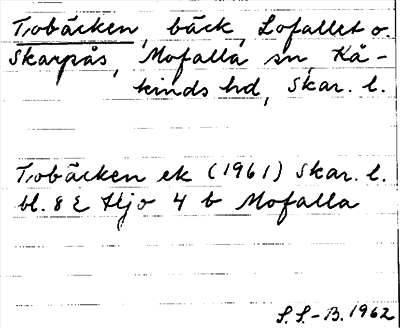 Tobäcken, bäck, Lofallet o.
Skarpås, Mofalla sn, Kå-
kinds hd, Skar. l.
Tobäcken ek (1961) Skar. l.
bl. 8 E Hjo 4 b Mofalla
S.S.-B. 1962